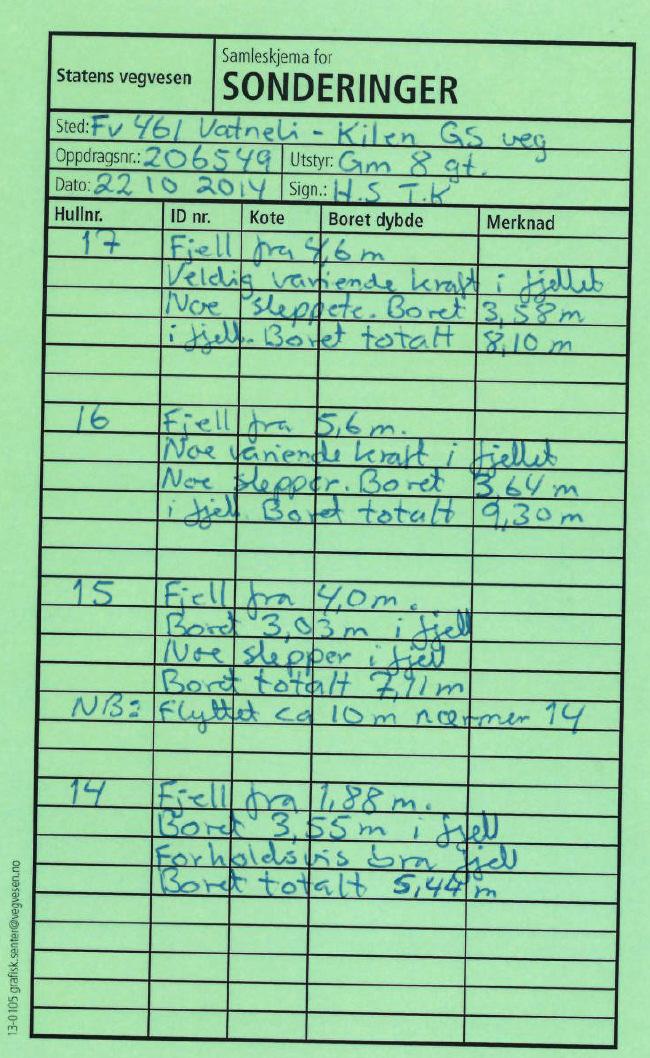 Statens vegvesen
Samleskjema for
SONDERINGER
Sted: Fv 461 Vatneli - Kilen GS veg
Oppdragsnr.: 206549 Utstyr: Gm 8 gt.
Dato: 22 10 2014 Sign.: H.S T.K
Hullnr. ID nr. Kote Boret dybde Merknad
17 Fjell fra 4,6 m
Veldig variende kraft i fjellet
Noe sleppete. Boret 3,58 m
i fjell. Boret totalt 8,10 m
16 Fjell fra 5,6 m.
Noe variende kraft i fjellet
Noe slepper. Boret 3,64 m
i fjell. Boret totalt 9,30 m
15 Fjell fra 4,0 m.
Boret 3,03 m i fjell
Noe slepper i fjell
Boret totalt 7,11 m
NB: Flyttet ca 10 m nærmer 14
14 Fjell fra 1,88 m.
Boret 3,55 m i fjell
Forholdsvis bra fjell
Boret totalt 5,44 m
13-0105 grafisk.senter@vegvesen.no